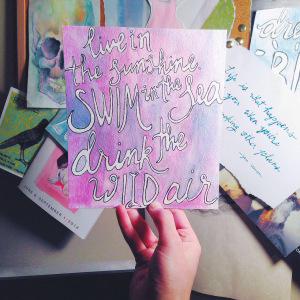 live in
the sunshine
SWIM in the Sea
drink the
WILD air
life is what happens
you when you're
making other plans.
JUNE & SEPTEMBER